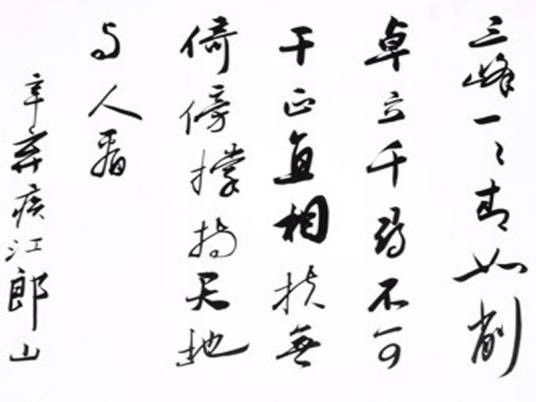 三峰一々青如削
卓立千尋不可
干正直相扶無
倚傍撑持天地
与人看
辛弃疾江郎山